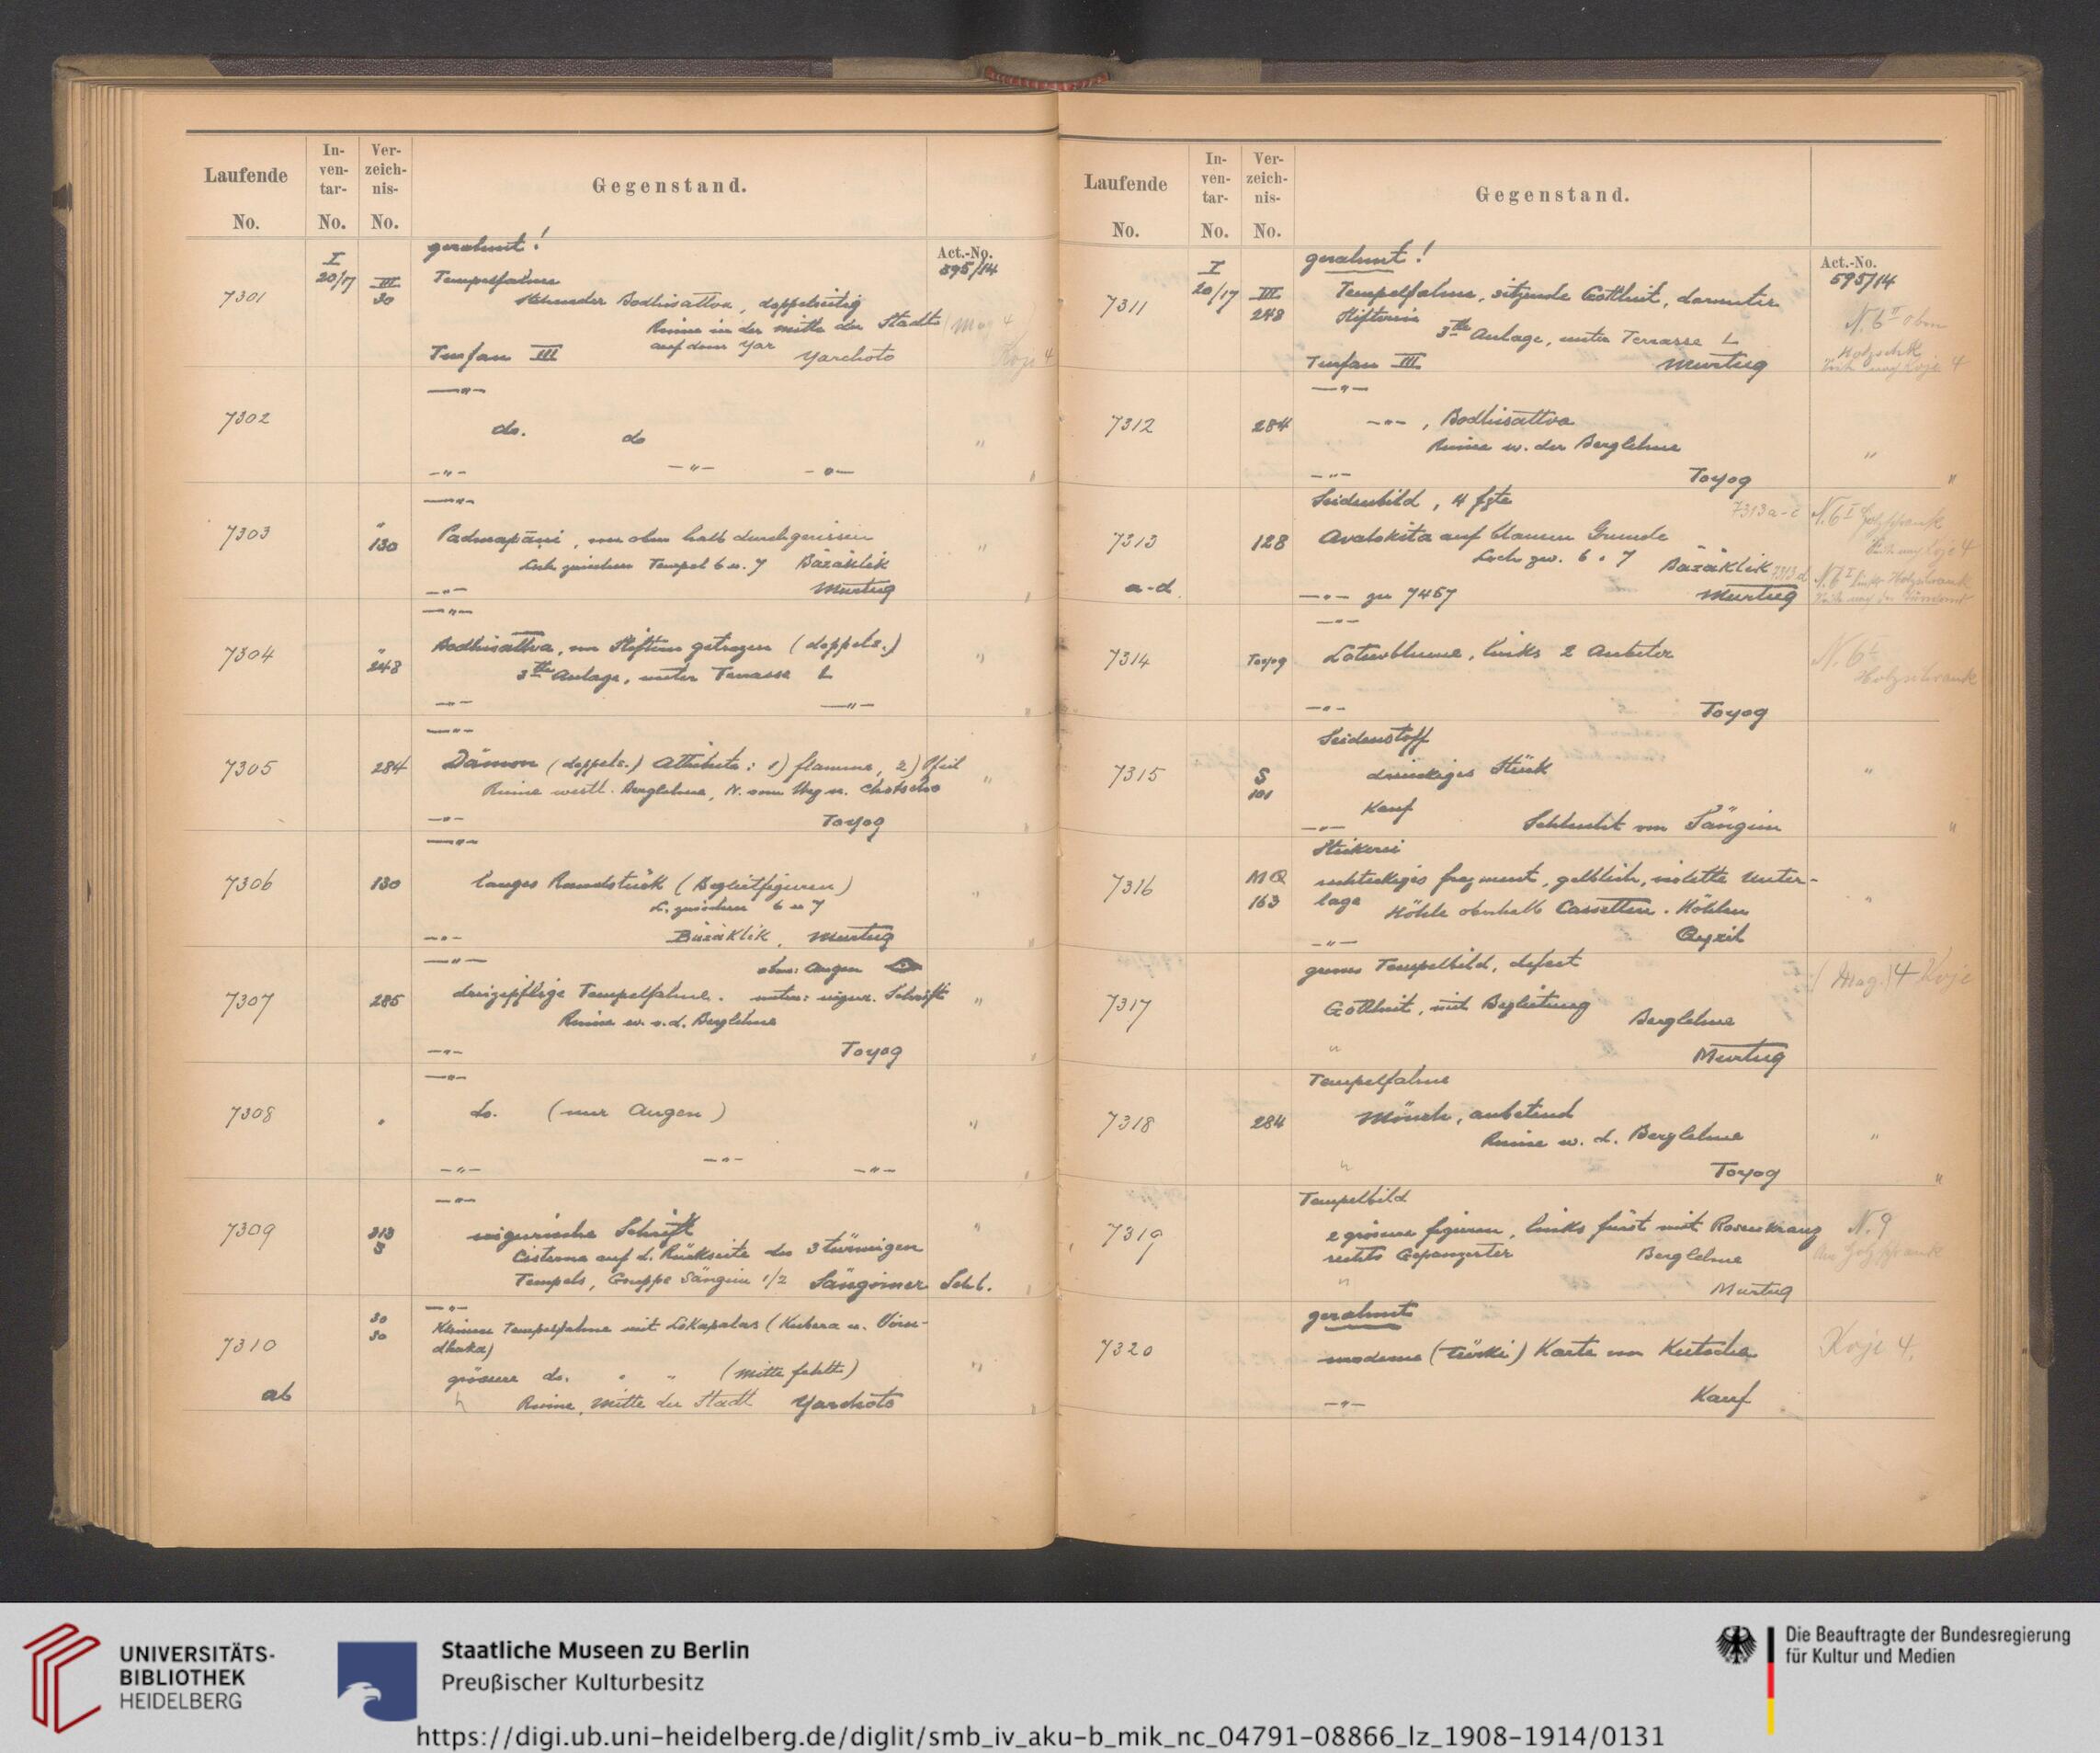 Laufende No.
In-ven-tar- No.
Ver-zeich-nis- No.
Gegenstand.
Act.-No.
595/14
gerahmt!
7301
I 20/17
III 30
Tempelfahne
stehender Bodhisattva, doppelseitig
Ruine in der Mitte der Stadt
auf dem Yar
Turfan III Yarchoto
Koje 4
—"—
7302
do. do "
—"— —"— —"—
—"—
7303
" 130
Padmapāṇi, von oben halb durchgerissen "
Loch zwischen Tempel 6 u. 7 Bäzäklik
—"— Murtug
—"—
7304
" 248
Bodhisattva, von Stiftern getragen (doppels.) "
3te Anlage, unter Terrasse L
—"— —"—
—"—
7305
284
Dämon (doppels.) Attribute: 1) Flamme, 2) Pfeil "
Ruine westl. Berglehne, N. vom Weg n. Chotscho
—"— Toyog
—"—
7306
130
langes Randstück (Begleitfiguren) "
L. zwischen 6 u 7
—"— Bäzäklik, Murtug
—"— oben: Augen
7307
285
dreizipflige Tempelfahne. unten: uigur. Schrift "
Ruine w. v. d. Berglehne
—"— Toyog
—"—
7308
"
do. (nur Augen) "
—"— —"— —"—
—"—
7309
313 S
uigurische Schrift "
Cisterne auf d. Rückseite des 3türmigen
Tempels, Gruppe Sängim 1/2 Sängimer Schl.
—"—
7310
30
30
Kleinere Tempelfahne mit Lokapalas (Kubera u. Viru-
dhaka)
grössere do. " " (Mitte fehlt) "
ab
" Ruine, Mitte der Stadt Yarchoto
Laufende No.
In-ven-tar- No.
Ver-zeich-nis- No.
Gegenstand.
Act.-No.
595/14
gerahmt!
7311
I 20/17
III 248
Tempelfahne, sitzende Gottheit, darunter
Stifterin
3te Anlage, unter Terrasse L
Turfan III Murtug
N. 6 II oben
Holzschk
Koje 4
—"—
7312
284
—"—, Bodhisattva
Ruine w. der Berglehne "
—"— Toyog "
Seidenbild, 4 fgte
7313a-c
N. 6 I Holzschrank
7313
128
Avalokita auf blauem Grunde
Koje 4
Loch zw. 6 u 7 Bäzäklik
7313d N. 6 I Holzschrank
a-d
—"— zu 7457 Murtug
—"—
7314
Toyog
Lotusblume, links 2 Anbeter
N. 6 I
Holzschrank
—"— Toyog
Seidenstoff
7315
S 101
dreieckiges Stück "
Kauf
—"— Schlucht von Sängim "
Stickerei
7316
MQ 163
rechteckiges Fragment, gelblich, violette Unter-
lage Höhle oberhalb Cassetten-Höhlen "
—"— Qyzil
grosses Tempelbild, defect
(Mag.) 4 Koje
7317
Gottheit, mit Begleitung Berglehne
" Murtug
Tempelfahne
7318
284
Mönch, anbetend
Ruine w. d. Berglehne "
" Toyog "
Tempelbild
7319
2 grössere Figuren, links Fürst mit Rosenkranz N. 9
rechts Gepanzerter Berglehne
Holzschrank
" Murtug
gerahmt
7320
moderne (türki) Karte von Kutscha Koje 4.
—"— Kauf
UNIVERSITÄTS-
BIBLIOTHEK
HEIDELBERG
Staatliche Museen zu Berlin
Preußischer Kulturbesitz
Die Beauftragte der Bundesregierung
für Kultur und Medien
https://digi.ub.uni-heidelberg.de/diglit/smb_iv_aku-b_mik_nc_04791-08866_lz_1908-1914/0131